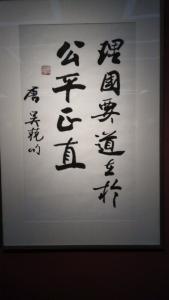 理國要道在於
公平正直
唐 吳兢